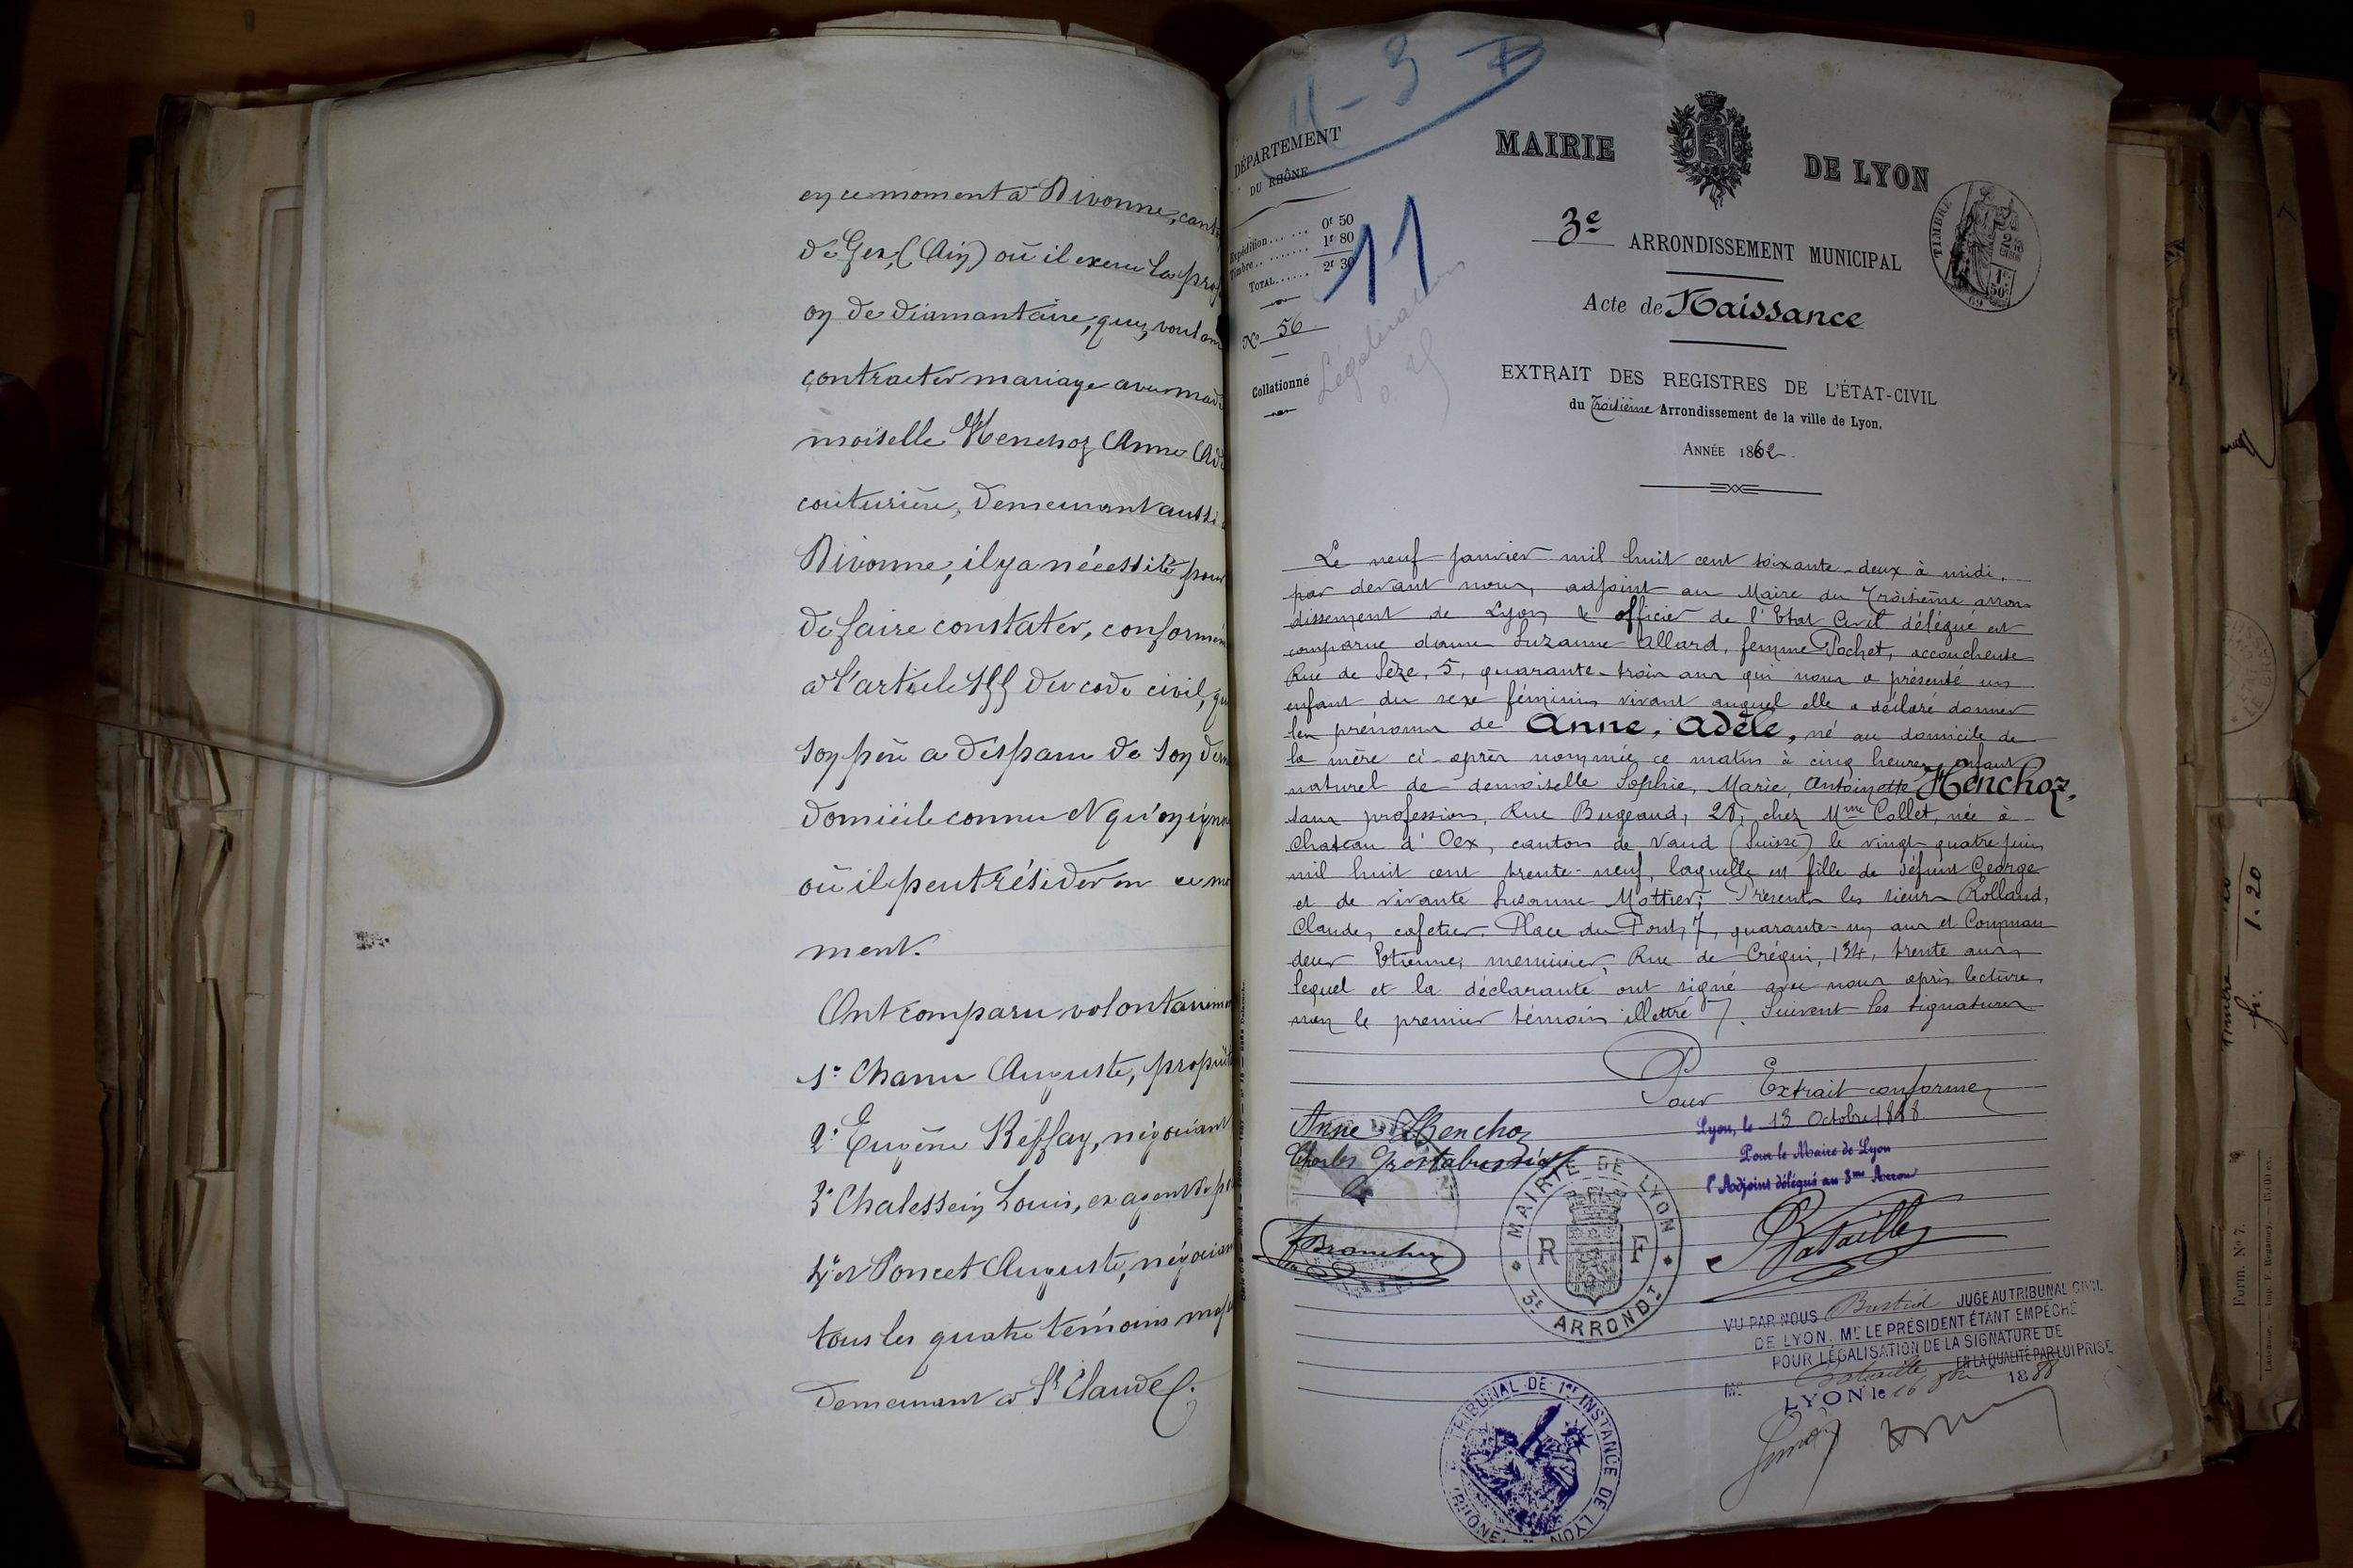 en ce moment à Divonne, cant
de Gex, (Ain) où il exerce la prof
on de diamantaire, que, voulan
contracter mariage avec made
moiselle Henchoz Anne Ad
couturière, demeurant aussi à
Divonne, il y a nécessité pour
de faire constater, conformém
à l'article 155 du code civil, qu
son père a disparu de son dern
domicile connu et qu'on igno
où il peut résider en ce mo
ment.
Ont comparu volontairem
1° Chanu Auguste, propriét
2° Eugène Reffay, négociant
3° Chalessein Louis, ex agent de po
4° et Poncet Auguste, négocian
tous les quatre témoins maj
demeurant à St Claude.
11 - 3
DÉPARTEMENT
DU RHÔNE
Expédition... ... 0f 50
Timbre.. ....... 1f 80
TOTAL...... 2f 30
11
No 56
Collationné
Légalisation
0. 25
MAIRIE DE LYON
TIMBRE
3e ARRONDISSEMENT MUNICIPAL
Acte de Naissance
EXTRAIT DES REGISTRES DE L'ÉTAT-CIVIL
du Troisième Arrondissement de la ville de Lyon.
ANNÉE 1862
Le neuf janvier mil huit cent soixante-deux à midi,
par devant nous, adjoint au Maire du Troisième arron
dissement de Lyon & officier de l'Etat Civil délégué est
comparue dame Suzanne Allard, femme Pochet, accoucheuse
Rue de Sèze, 5, quarante-trois ans qui nous a présenté un
enfant du sexe féminin vivant auquel elle a déclaré donner
les prénoms de Anne, Adèle, né au domicile de
la mère ci-après nommée ce matin à cinq heures, enfant
naturel de demoiselle Sophie, Marie, Antoinette Henchoz,
sans profession, Rue Bugeaud, 28, chez Mme Collet, née à
Chateau d'Oex, canton de Vaud (Suisse) le vingt-quatre juin
mil huit cent trente-neuf, laquelle est fille de défunt George
et de vivante Susanne Mottier; Présents les sieurs Rolland,
Claude, cafetier, Place du Pont, 7, quarante-un ans et
Etienne, menuisier, Rue de Créqui, 134, trente ans,
lequel et la déclarante ont signé avec nous après lecture,
non le premier témoin illettré. Suivent les signatures
Pour Extrait conforme
Lyon, le 13 Octobre 1888
Pour le Maire de Lyon
l'Adjoint délégué au 3me Arron
Bataille
Anne Henchoz
Charles
MAIRIE DE LYON
R F
3E ARRONDT
VU PAR NOUS JUGE AU TRIBUNAL CIVIL
DE LYON. Mr LE PRÉSIDENT ÉTANT EMPÊCHÉ
POUR LÉGALISATION DE LA SIGNATURE DE
Mr Bataille EN LA QUALITÉ PAR LUI PRISE
LYON le 16 1888
TRIBUNAL DE 1er INSTANCE DE LYON
(RHONE)
Timbre
fr. 1.20
Form. No 7.